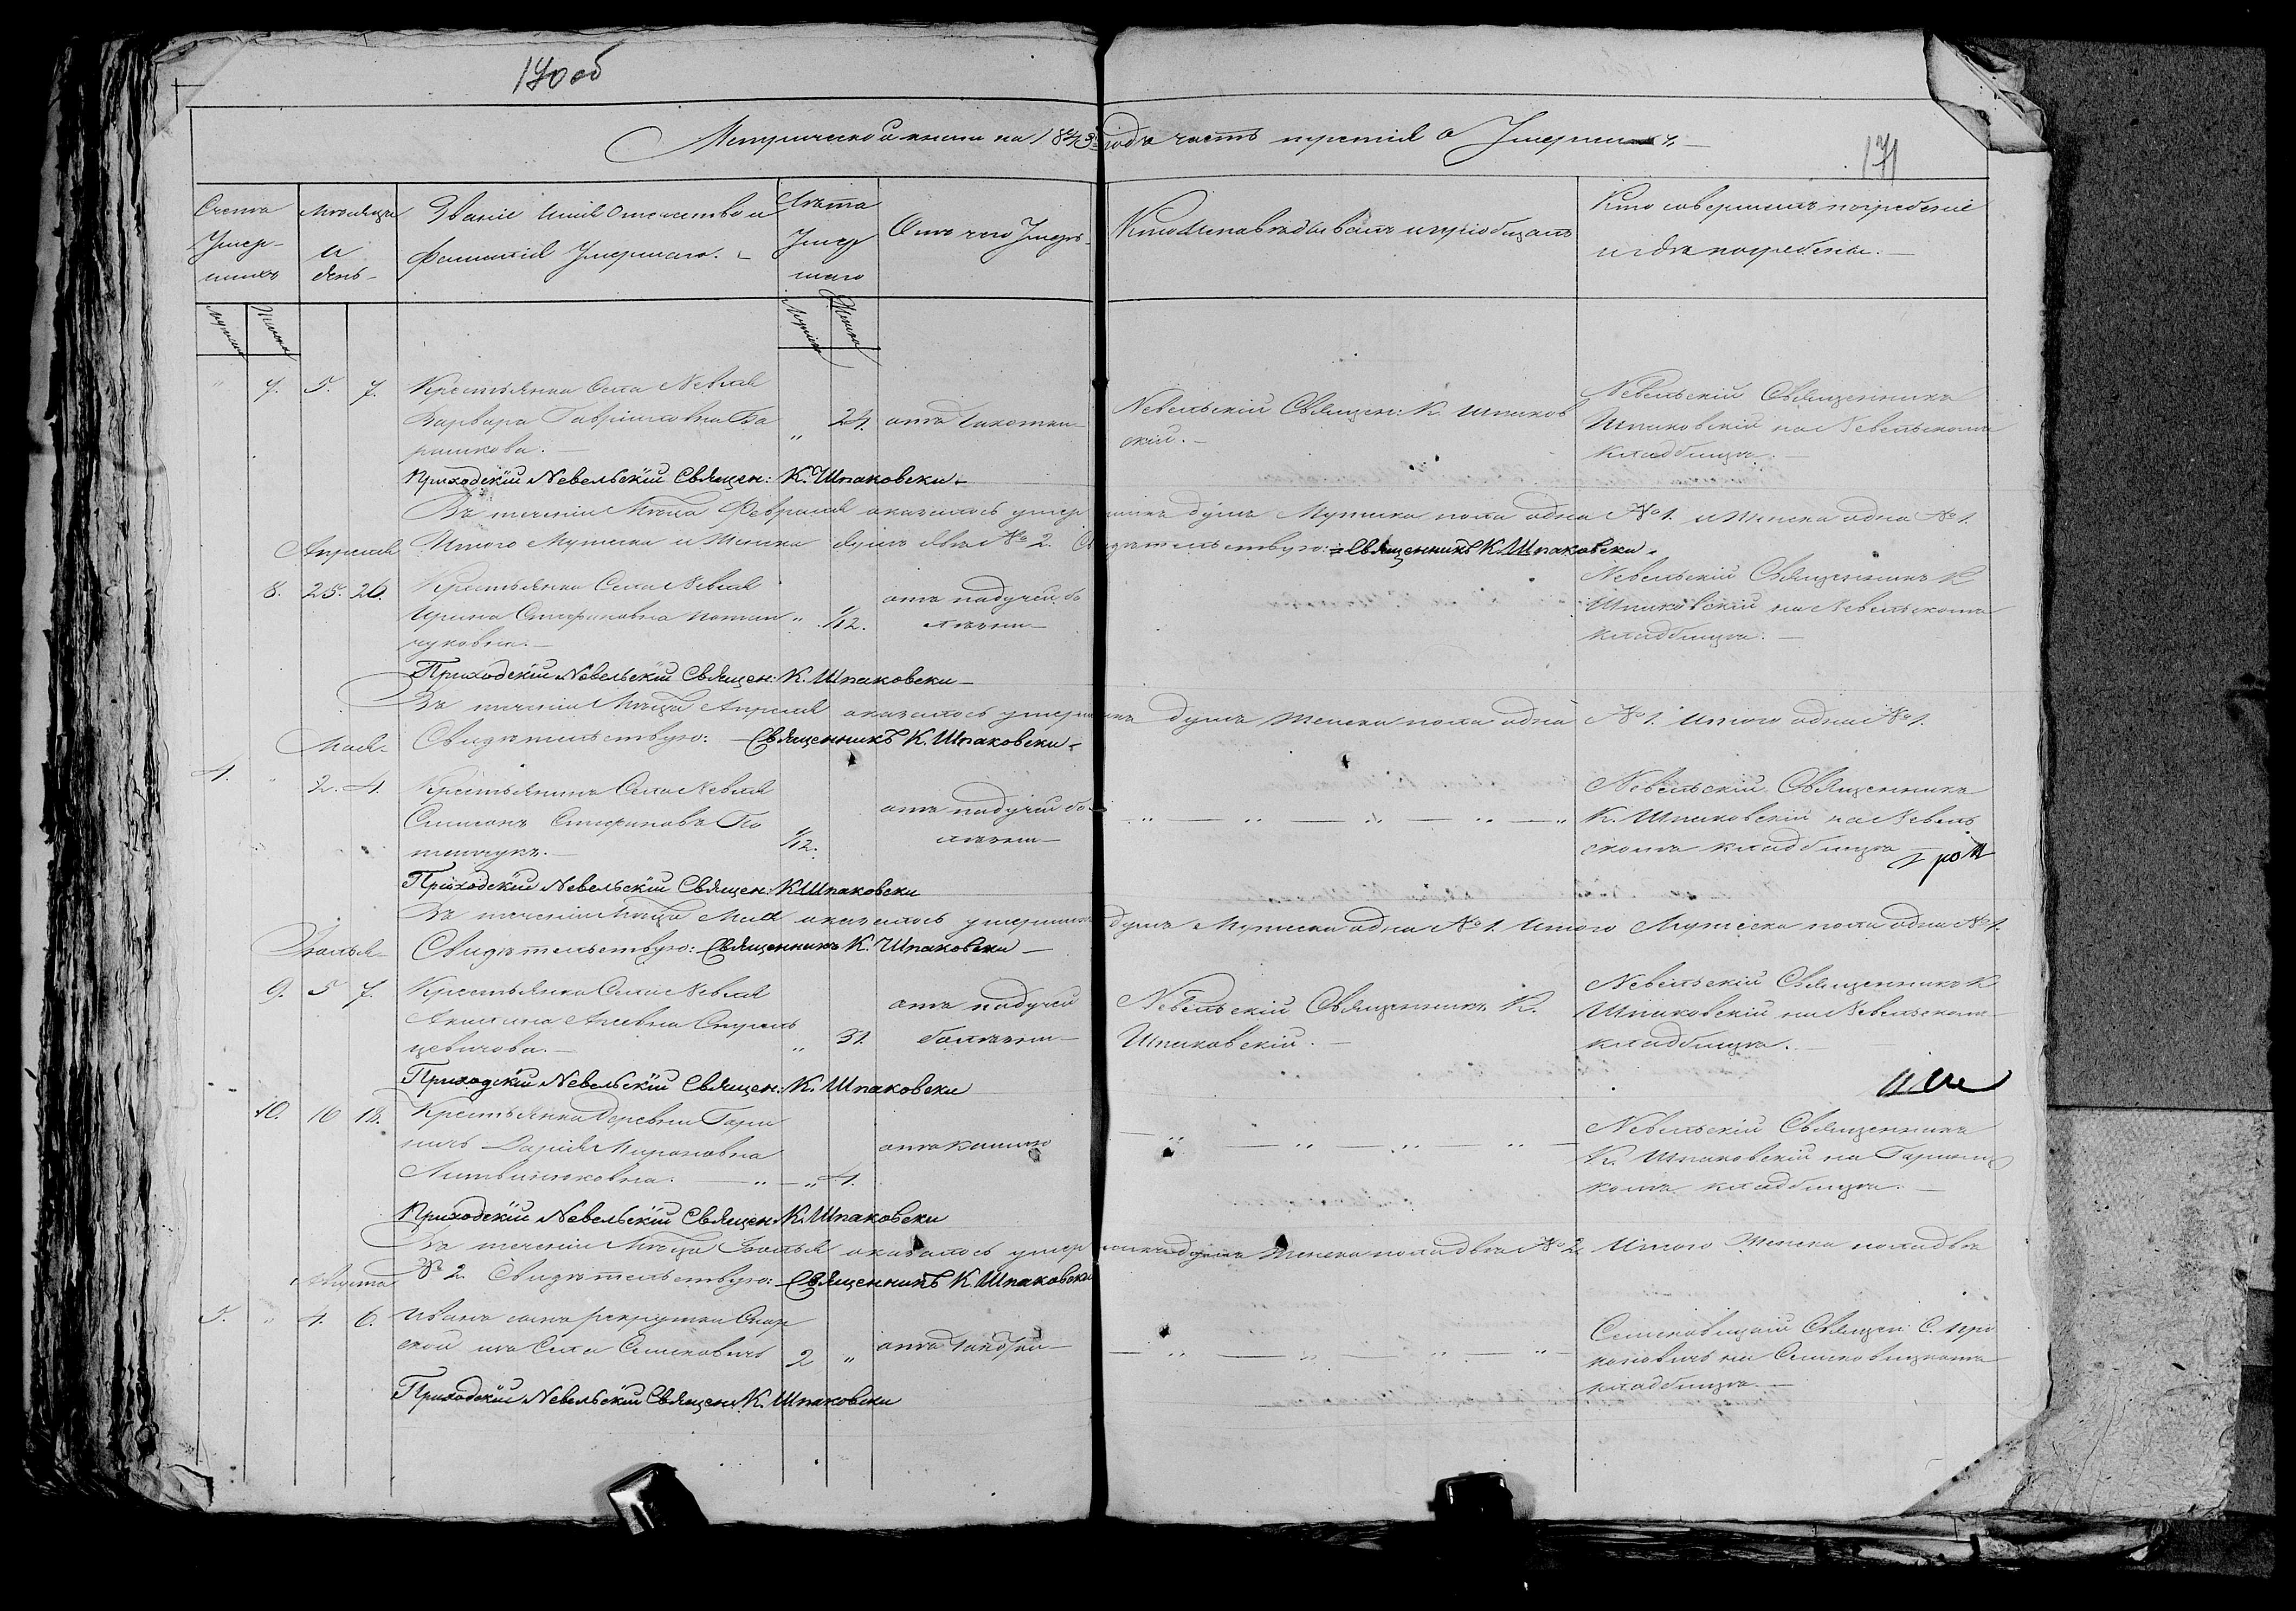 170 об
171
Метрической книги на 1843 года часть третія о Умершихъ
Счетъ Умершихъ
Мужеска
Женска
Мѣсяцъ и день
Званіе Имя Отечество и Фамилія Умершаго.
Лѣта Умершаго
Мужеска
Женска
Отъ чего Умеръ
Кто Исповѣдывалъ и пріобщалъ
Кто совершилъ погребеніе и гдѣ погребены.
" 7. 5. 7. Крестьянка Села Невля
Варвара Гавріиловна Ба
рошкова. " 24. отъ чахотки
Невельскій Священ: К. Шпаков
скій.
Невельскій Священникъ
Шпаковскій на Невельскомъ
кладбищѣ.
Приходскій Невельскій Священ: К. Шпаковски
Въ теченіи Мѣсца Февраля оказалось умершихъ душъ Мужска пола одна №1. и Женска одна №1.
Итого Мужеска и Женска душъ двѣ №2. Свидѣтельствую: Священникъ К. Шпаковски.
Апреля
8. 25. 26. Крестьянка Села Невля
Ирина Стефановна Потап
чуковна. " 1/12. отъ падучей бо
лѣзни
Невельскій Священникъ К
Шпаковскій на Невельскомъ
кладбищѣ.
Приходскій Невельскій Священ: К. Шпаковски
Въ теченіи Мѣсца Апреля оказалось умершихъ душъ женска пола одна №1. Итого одна №1.
Свидѣтельствую: Священникъ К. Шпаковски
Мая
4. " 2. 4. Крестьянинъ Села Невля
Симеонъ Стефановъ По
тапчукъ. 1/12. отъ падучей бо
лѣзни
Невельскій Священникъ
К. Шпаковскій на Невель
скомъ кладбищѣ
Приходскій Невельскій Священ: К Шпаковски
Въ теченіи Мѣсца Мая оказалось умершихъ душъ Мужеска одна №1. Итого Мужеска пола одна №1.
Свидѣтельствую: Священникъ К. Шпаковски
9. 5 7. Крестьянка Села Невля
" 31. отъ падучей
болѣзни
Невельскій Священникъ К.
Шпаковскій.
Невельскій Священникъ К
Шпаковскій на Невельскомъ
кладбищѣ.
Приходскій Невельскій Священ: К. Шпаковски
10. 16 18. Крестьянка Деревни Гори
Дарія Мироновна
Литвинюковна. " 4. отъ кашлю
Невельскій Священникъ
К. Шпаковскій на
кладбищѣ.
Приходскій Невельскій Священ: К. Шпаковски
Въ теченіи Мѣсца Іюля оказалось умершихъ душъ женска пола двѣ №2. Итого Женска пола двѣ
№2. Свидѣтельствую: Священникъ К. Шпаковски
Августа
5. " 4. 6. Иванъ сынъ рекрутки
изъ Села Семиховичъ 2 " отъ чахотки
Семиховицкій Священ: С.
на Семиховицкомъ
кладбищѣ.
Приходскій Невельскій Священ: К. Шпаковски